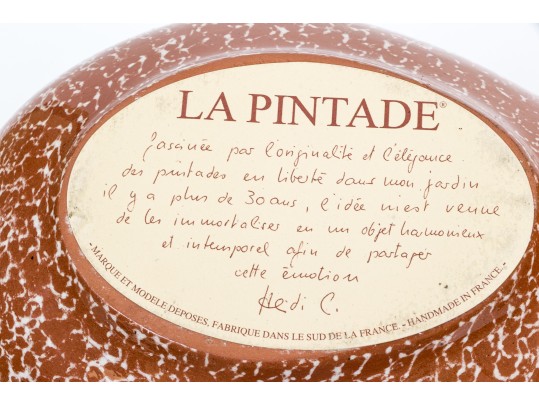 LA PINTADE®
fascinée par l'originalité et l'élégance
des pintades en liberté dans mon jardin
il y a plus de 30 ans, l'idée m'est venue
de les immortaliser en un objet harmonieux
et intemporel afin de partager
cette émotion
Heidi C.
- MARQUE ET MODELE DEPOSES, FABRIQUE DANS LE SUD DE LA FRANCE. - HANDMADE IN FRANCE. -